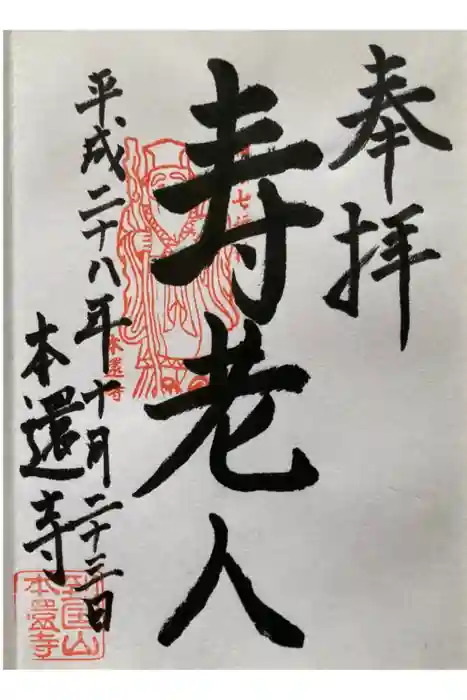 奉拝
寿老人
平成二十八年十月二十三日
本還寺
本還寺
本還寺